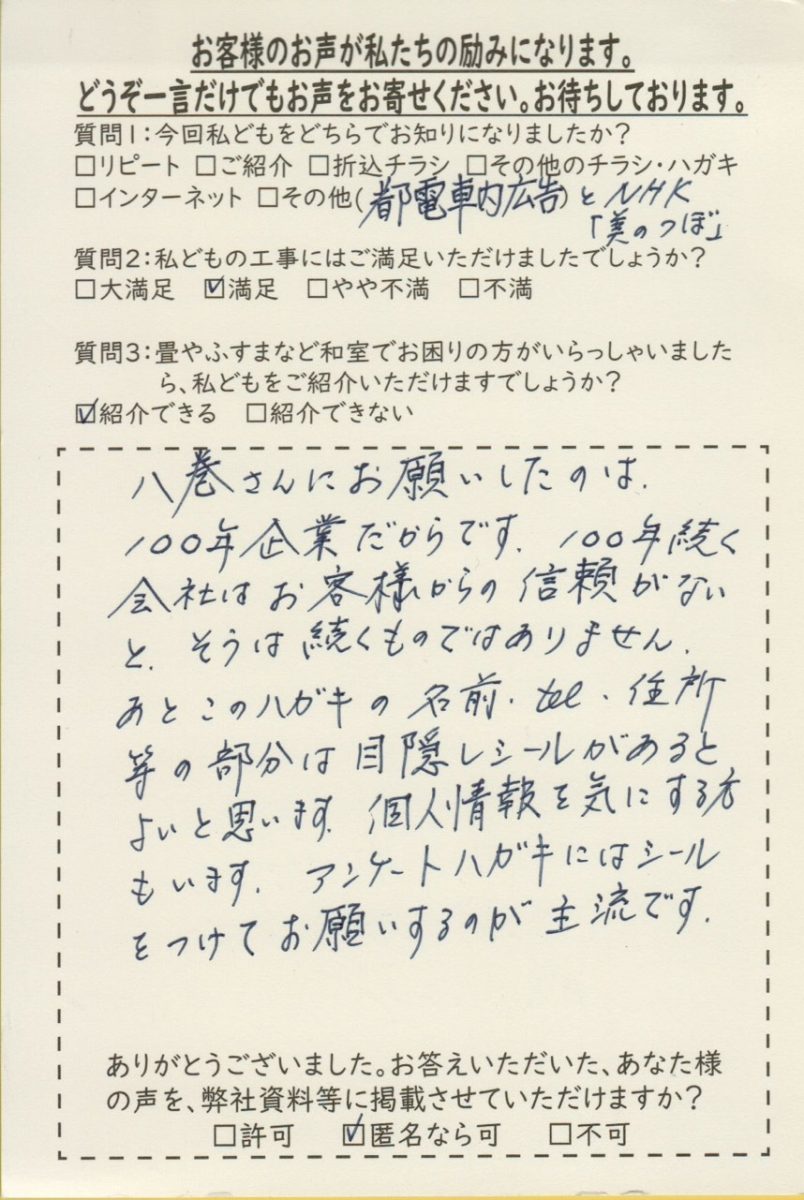 お客様のお声が私たちの励みになります。
どうぞ一言だけでもお声をお寄せください。お待ちしております。
質問1：今回私どもをどちらでお知りになりましたか？
□リピート □ご紹介 □折込チラシ □その他のチラシ・ハガキ
□インターネット □その他(都電車内広告)とNHK
「美のつぼ」
質問2：私どもの工事にはご満足いただけましたでしょうか？
□大満足 ☑満足 □やや不満 □不満
質問3：畳やふすまなど和室でお困りの方がいらっしゃいました
ら、私どもをご紹介いただけますでしょうか？
☑紹介できる □紹介できない
八巻さんにお願いしたのは、
100年企業だからです。100年続く
会社はお客様からの信頼がない
と、そうは続くものではありません。
あとこのハガキの名前・tel・住所
等の部分は目隠しシールがあると
よいと思います。個人情報を気にする方
もいます。アンケートハガキにはシール
をつけてお願いするのが主流です。
ありがとうございました。お答えいただいた、あなた様
の声を、弊社資料等に掲載させていただけますか？
□許可 ☑匿名なら可 □不可